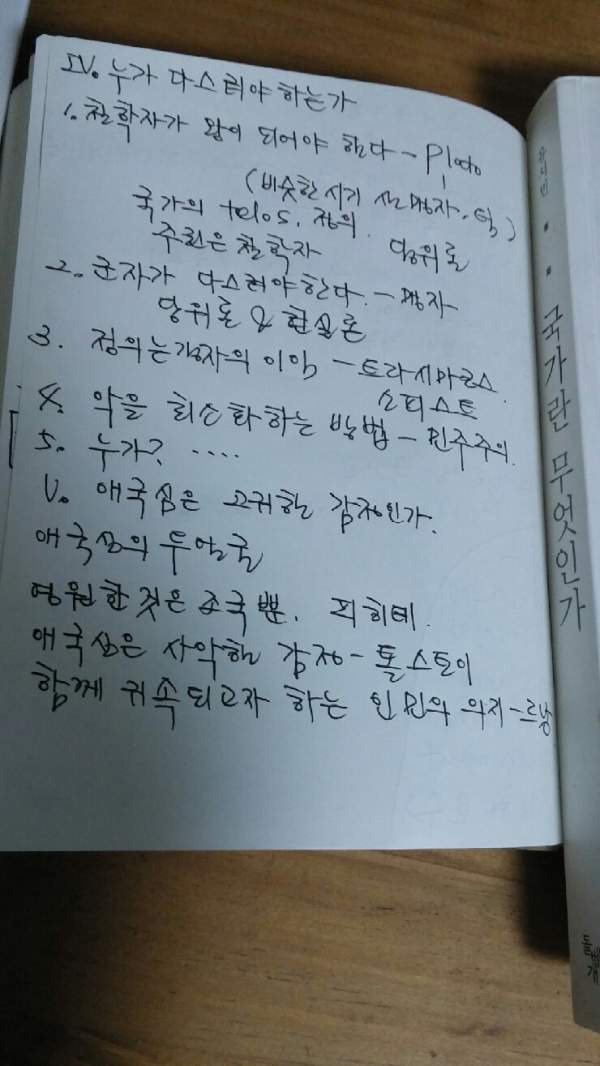 IV. 누가 다스려야 하는가
1. 철학자가 왕이 되어야 한다 - Plato
(비슷한 시기 맹자.
국가의 telos. 정의. 당위론
주권은 철학자
2. 군자가 다스려야한다. - 맹자
당위론 & 현실론
3. 정의는 강자의 이익 - 트라시마코스.
소피스트
4. 악을 최소화하는 방법 - 민주주의.
5. 누가? ....
V. 애국심은 고귀한 감정인가.
애국심의 두얼굴
영원한 것은 조국뿐. 피히테.
애국심은 사악한 감정 - 톨스토이
함께 귀속되고자 하는 인민의 의지 - 르낭
유시민
국가란 무엇인가
돌베개